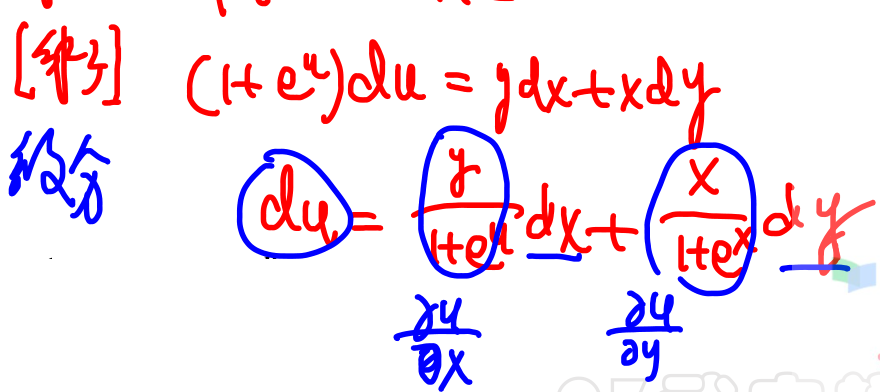 (1+e^u)du = ydx+xdy
du = y/(1+e^u) dx + x/(1+e^x) dy
∂u/∂x ∂u/∂y